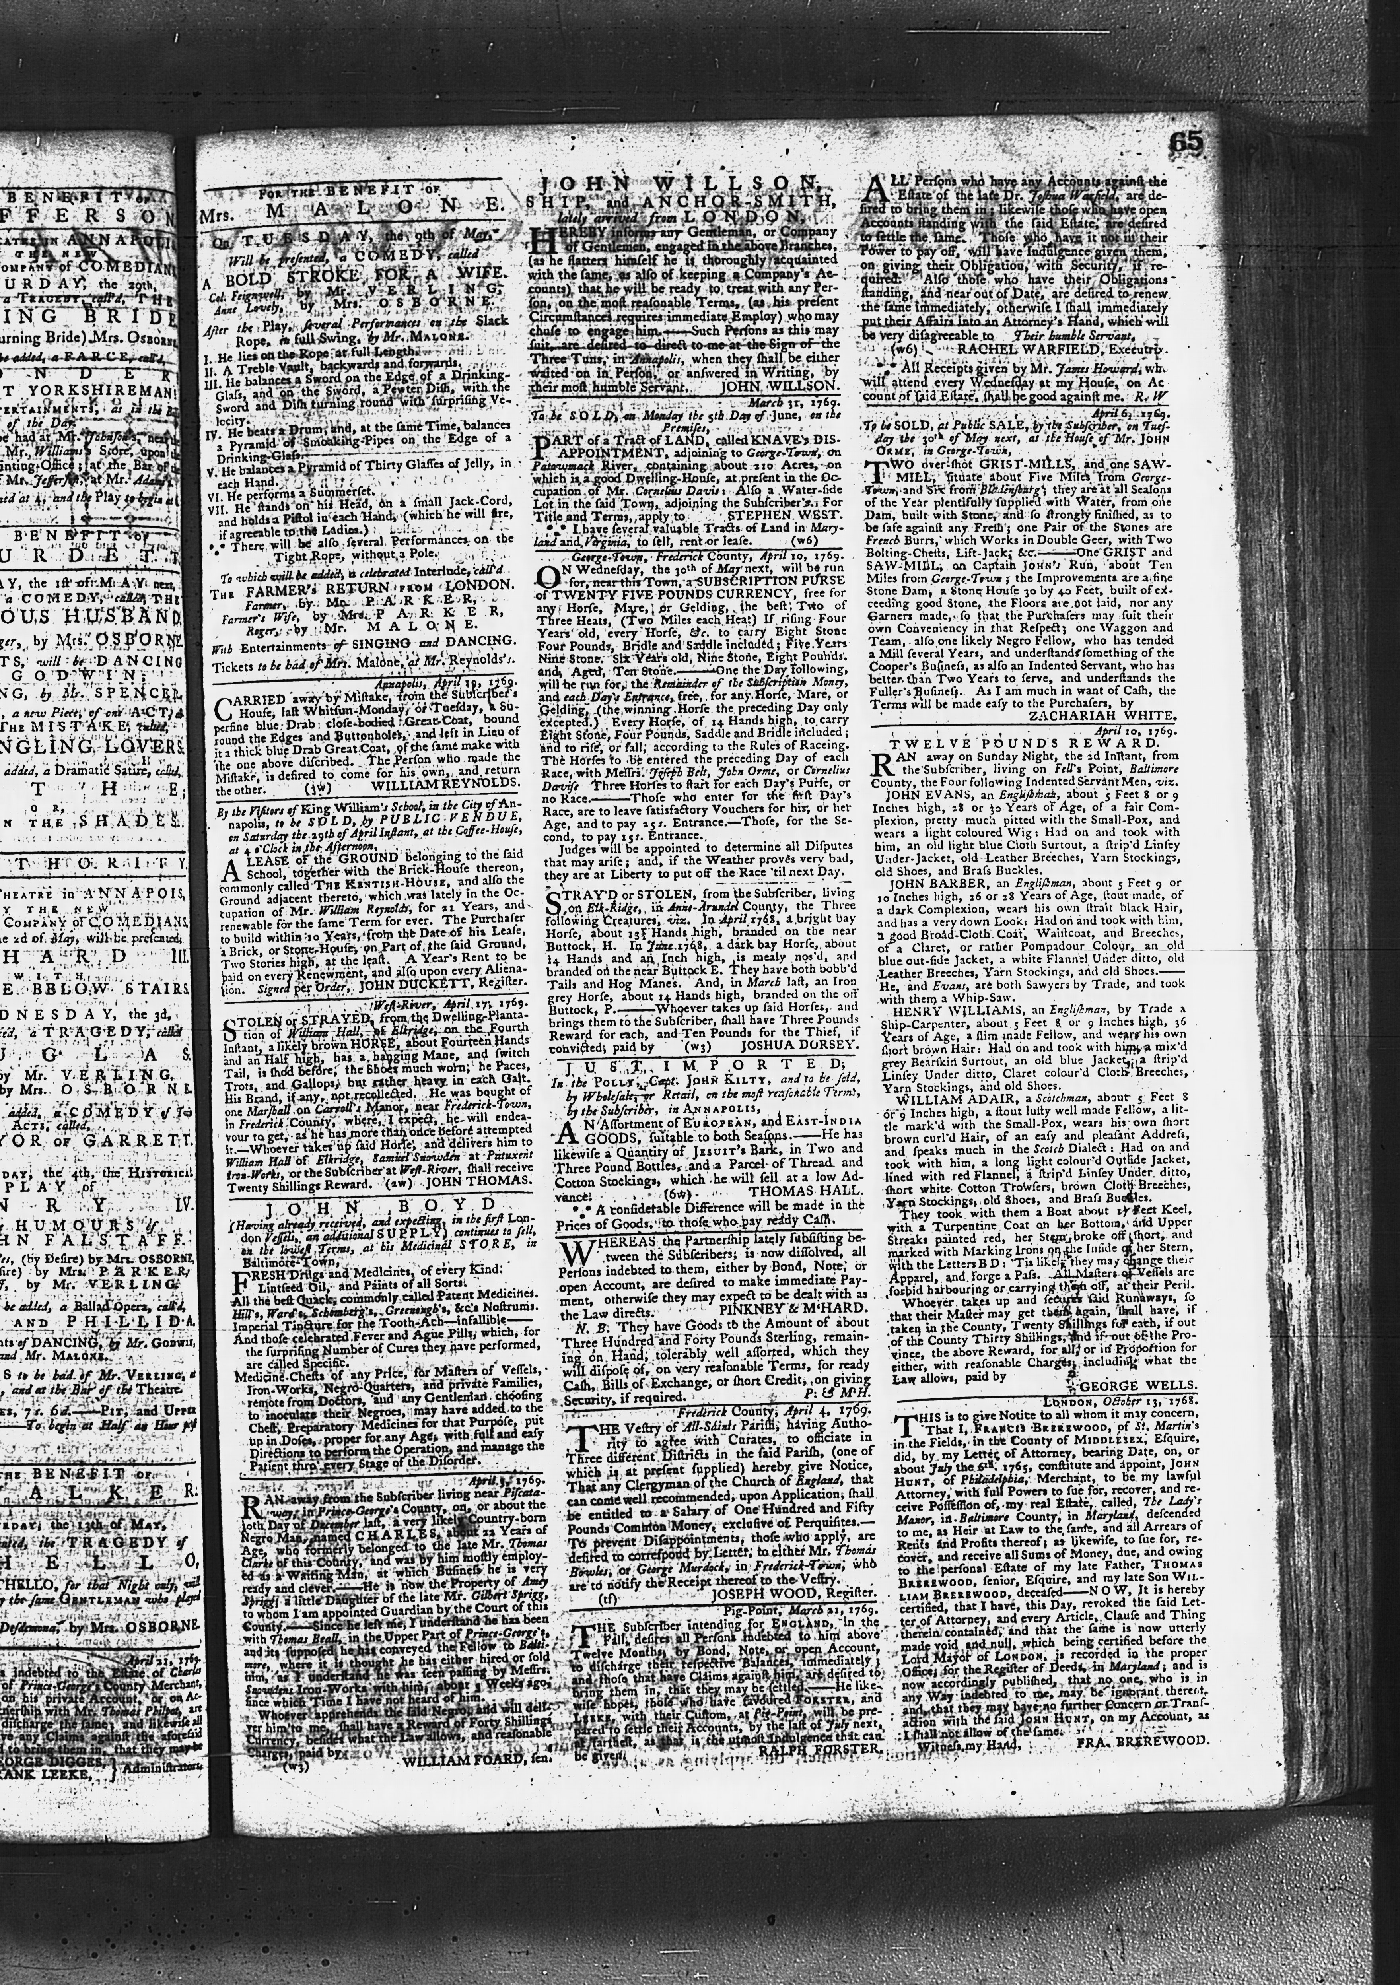 BENEFIT OF
FFERSON
THEATRE IN ANNAPOLIS
THE NEW
COMPANY of COMEDIANS
URDAY, the 29th,
a TRAGEDY, call'd, THE
ING BRIDE
urning Bride) Mrs. OSBORNE
be added, a FARCE, call'd,
ONDER
T YORKSHIREMAN
of the Day.
BENEFIT of
URDETT
AY, the 1st of MAY next,
a COMEDY, called, THE
OUS HUSBAND
ger, by Mrs. OSBORNE
TS, will be DANCING
GODWIN;
NG, by Mr. SPENCER
, a new Piece, of one ACT,
THE MISTAKE,
NGLING LOVERS
added, a Dramatic Satire, called,
THE;
OR,
N THE SHADES.
THORITY
THEATRE in ANNAPOIS,
Y THE NEW
COMPANY of COMEDIANS
e 2d of May, will be presented,
HARD III.
WITH
E BELOW STAIRS
DNESDAY, the 3d,
ed, a TRAGEDY, called
UGLAS
by Mr. VERLING,
by Mrs. OSBORNE
added, a COMEDY of Two
ACTS, called,
YOR OF GARRETT.
DAY, the 4th, the Historical
PLAY of
NRY IV.
HUMOURS of
HN FALSTAFF.
es, (by Desire) by Mrs. OSBORNE,
sire) by Mrs. PARKER;
f, by Mr. VERLING.
be added, a Ballad Opera, call'd,
AND PHILLIDA
nts of DANCING, by Mr. GODWIN,
and Mr. MALONE.
S to be had of Mr. VERLING,
, and at the Bar of the Theatre.
ES, 7s. 6d.——PIT, and UPPER
To begin at Half an Hour past
THE BENEFIT OF
ALKER.
URDAY, the 13th of MAY,
the TRAGEDY of
HELLO,
THELLO, for that Night only,
by the same GENTLEMAN who played
Desdemona, by Mrs. OSBORNE.
April 21, 1769.
s indebted to the Estate of Charles
of Prince-George's County Merchant,
on his private Account, or on Ac-
nership with Mr. Thomas Philpot, are
discharge the same; and likewise all
ve any Claims against the aforesaid
to bring them in, that they may be
GEORGE DIGGES, } Administrators
RANK LEEKE,
65
FOR THE BENEFIT OF
Mrs. MALONE.
On TUESDAY, the 9th of May,
Will be presented, a COMEDY, called
A BOLD STROKE FOR A WIFE.
Col. Feignwell, by Mr. VERLING,
Anne Lovely, by Mrs. OSBORNE.
After the Play, several Performances on the Slack
Rope, in full Swing, by Mr. MALONE.
I. He lies on the Rope at full Length.
II. A Treble Vault, backwards and forwards.
III. He balances a Sword on the Edge of a Drinking-
Glass, and on the Sword, a Pewter Dish, with the
Sword and Dish turning round with surprising Ve-
locity.
IV. He beats a Drum, and, at the same Time, balances
a Pyramid of Smoaking-Pipes on the Edge of a
Drinking-Glass.
V. He balances a Pyramid of Thirty Glasses of Jelly, in
each Hand.
VI. He performs a Summerset.
VII. He stands on his Head, on a small Jack-Cord,
and holds a Pistol in each Hand, (which he will fire,
if agreeable to the Ladies.)
*** There will be also several Performances on the
Tight Rope, without a Pole.
To which will be added, a celebrated Interlude, call'd
THE FARMER'S RETURN FROM LONDON.
Farmer, by Mr. PARKER,
Farmer's Wife, by Mrs. PARKER,
Roger, by Mr. MALONE.
With Entertainments of SINGING and DANCING.
Tickets to be had of Mrs. Malone, at Mr. Reynolds's.
Annapolis, April 19, 1769.
CARRIED away by Mistake, from the Subscriber's
House, last Whitsun-Monday, or Tuesday, a Su-
perfine blue Drab close-bodied Great-Coat, bound
round the Edges and Buttonholes, and left in Lieu of
it a thick blue Drab Great Coat, of the same make with
the one above discribed. The Person who made the
Mistake, is desired to come for his own, and return
the other. (3w) WILLIAM REYNOLDS.
By the Visitors of King William's School, in the City of An-
napolis, to be SOLD, by PUBLIC VENDUE,
on Saturday the 29th of April Instant, at the Coffee-House,
at 4 o'Clock in the Afternoon,
A LEASE of the GROUND belonging to the said
School, together with the Brick-House thereon,
commonly called THE KENTISH-HOUSE, and also the
Ground adjacent thereto, which was lately in the Oc-
cupation of Mr. William Reynolds, for 21 Years, and
renewable for the same Term for ever. The Purchaser
to build within 10 Years, from the Date of his Lease,
a Brick, or Stone House, on Part of the said Ground,
Two Stories high, at the least. A Year's Rent to be
paid on every Renewment, and also upon every Aliena-
tion. Signed per Order, JOHN DUCKETT, Register.
West-River, April 17, 1769.
STOLEN or STRAYED, from the Dwelling-Planta-
tion of William Hall, of Elkridge, on the Fourth
Instant, a likely brown HORSE, about Fourteen Hands
and an Half high, has a hanging Mane, and switch
Tail, is shod before, the Shoes much worn; he Paces,
Trots, and Gallops, but rather heavy in each Gait.
His Brand, if any, not recollected. He was bought of
one Marshall on Carroll's Manor, near Frederick-Town,
in Frederick County, where, I expect, he will endea-
vour to get, as he has more than once before attempted
it.—Whoever takes up said Horse, and delivers him to
William Hall of Elkridge, Samuel Snowden at Patuxent
Iron-Works, or the Subscriber at West-River, shall receive
Twenty Shillings Reward. (2w) JOHN THOMAS.
JOHN BOYD
(Having already received, and expecting, in the first Lon-
don Vessels, an additional SUPPLY) continues to sell,
on the lowest Terms, at his Medicinal STORE, in
Baltimore-Town,
FRESH Drugs and Medicines, of every Kind:
Linseed Oil, and Paints of all Sorts.
All the best Quack, commonly called Patent Medicines.
Hill's, Ward's, Schomberg's, Greenough's, &c's Nostrums.
Imperial Tincture for the Tooth-Ach—infallible—
And those celebrated Fever and Ague Pills, which, for
the surprising Number of Cures they have performed,
are called Specific.
Medicine-Chests of any Price, for Masters of Vessels,
Iron-Works, Negro-Quarters, and private Families,
remote from Doctors, and any Gentleman choosing
to inoculate their Negroes, may have added to the
Chest, Preparatory Medicines for that Purpose, put
up in Doses, proper for any Age, with full and easy
Directions to perform the Operation, and manage the
Patient thro' every Stage of the Disorder.
April 5, 1769.
RAN away from the Subscriber living near Piscata-
way, in Prince-George's County, on, or about the
30th Day of December last, a very likely Country-born
Negro Man, named CHARLES, about 22 Years of
Age, who formerly belonged to the late Mr. Thomas
Clarke of this County, and was by him mostly employ-
ed as a Waiting Man, at which Business he is very
ready and clever.—He is now the Property of Amey
Sprigg, a little Daughter of the late Mr. Gilbert Sprigg,
to whom I am appointed Guardian by the Court of this
County.——Since he left me, I understand he has been
with Thomas Beall, in the Upper Part of Prince-George's,
and its supposed he has conveyed the Fellow to Balti-
more, where it is thought he has either hired or sold
him, as I understand he was seen passing by Messrs.
Snowdens Iron-Works with him, about 3 Weeks ago,
since which Time I have not heard of him.
Whoever apprehends the said Negro, and will deli-
ver him to me, shall have a Reward of Forty Shillings
Currency, besides what the Law allows, and reasonable
Charges, paid by
(w3) WILLIAM FOARD, sen.
JOHN WILLSON,
SHIP, and ANCHOR-SMITH,
lately arrived from LONDON,
HEREBY informs any Gentleman, or Company
of Gentlemen, engaged in the above Branches,
(as he flatters himself he is thoroughly acquainted
with the same, as also of keeping a Company's Ac-
counts) that he will be ready to treat with any Per-
son, on the most reasonable Terms, (as his present
Circumstances requires immediate Employ) who may
chuse to engage him.——Such Persons as this may
suit, are desired to direct to me at the Sign of the
Three Tuns, in Annapolis, when they shall be either
waited on in Person, or answered in Writing, by
their most humble Servant, JOHN WILLSON.
March 31, 1769.
To be SOLD, on Monday the 5th Day of June, on the
Premises,
PART of a Tract of LAND, called KNAVE's DIS-
APPOINTMENT, adjoining to George-Town, on
Patowmack River, containing about 210 Acres, on
which is a good Dwelling-House, at present in the Oc-
cupation of Mr. Cornelius Davis: Also a Water-side
Lot in the said Town, adjoining the Subscriber's. For
Title and Terms, apply to STEPHEN WEST.
*** I have several valuable Tracts of Land in Mary-
land and Virginia, to sell, rent or lease. (w6)
George-Town, Frederick County, April 10, 1769.
ON Wednesday, the 30th of May next, will be run
for, near this Town, a SUBSCRIPTION PURSE
of TWENTY FIVE POUNDS CURRENCY, free for
any Horse, Mare, or Gelding, the best Two of
Three Heats, (Two Miles each Heat) If rising Four
Years old, every Horse, &c. to carry Eight Stone
Four Pounds, Bridle and Saddle included; Five Years
Nine Stone, Six Years old, Nine Stone, Eight Pounds,
and, Aged, Ten Stone.——One the Day following,
will be run for, the Remainder of the Subscription Money,
and each Day's Entrance, free, for any Horse, Mare, or
Gelding, (the winning Horse the preceding Day only
excepted.) Every Horse, of 14 Hands high, to carry
Eight Stone, Four Pounds, Saddle and Bridle included;
and to rise, or fall, according to the Rules of Raceing.
The Horses to be entered the preceding Day of each
Race, with Messrs. Joseph Belt, John Orme, or Cornelius
Davis. Three Horses to start for each Day's Purse, or
no Race.——Those who enter for the first Day's
Race, are to leave satisfactory Vouchers for his, or her
Age, and to pay 25s. Entrance.—Those, for the Se-
cond, to pay 15s. Entrance.
Judges will be appointed to determine all Disputes
that may arise; and, if the Weather proves very bad,
they are at Liberty to put off the Race 'til next Day.
STRAY'D or STOLEN, from the Subscriber, living
on Elk-Ridge, in Anne-Arundel County, the Three
following Creatures, viz. In April 1768, a bright bay
Horse, about 13½ Hands high, branded on the near
Buttock, H. In June 1768, a dark bay Horse, about
14 Hands and an Inch high, is mealy nos'd, and
branded on the near Buttock E. They have both bobb'd
Tails and Hog Manes. And, in March last, an Iron
grey Horse, about 14 Hands high, branded on the off
Buttock, P.——Whoever takes up said Horses, and
brings them to the Subscriber, shall have Three Pounds
Reward for each, and Ten Pounds for the Thief, if
convicted, paid by (w3) JOSHUA DORSEY.
JUST IMPORTED,
In the POLLY, Capt. JOHN KILTY, and to be sold,
by Wholesale, or Retail, on the most reasonable Terms,
by the Subscriber, in ANNAPOLIS,
AN Assortment of EUROPEAN, and EAST-INDIA
GOODS, suitable to both Seasons.——He has
likewise a Quantity of JESUIT's Bark, in Two and
Three Pound Bottles, and a Parcel of Thread and
Cotton Stockings, which he will sell at a low Ad-
vance. (6w) THOMAS HALL.
*** A considerable Difference will be made in the
Prices of Goods, to those who pay ready Cash.
WHEREAS the Partnership lately subsisting be-
tween the Subscribers, is now dissolved, all
Persons indebted to them, either by Bond, Note, or
open Account, are desired to make immediate Pay-
ment, otherwise they may expect to be dealt with as
the Law directs. PINKNEY & M'HARD.
N. B. They have Goods to the Amount of about
Three Hundred and Forty Pounds Sterling, remain-
ing on Hand, tolerably well assorted, which they
will dispose of, on very reasonable Terms, for ready
Cash, Bills of Exchange, or short Credit, on giving
Security, if required. P. & M'H.
Frederick County, April 4, 1769.
THE Vestry of All-Saints Parish, having Autho-
rity to agree with Curates, to officiate in
Three different Districts in the said Parish, (one of
which is at present supplied) hereby give Notice,
That any Clergyman of the Church of England, that
can come well recommended, upon Application, shall
be entitled to a Salary of One Hundred and Fifty
Pounds Common Money, exclusive of Perquisites.—
To prevent Disappointments, those who apply, are
desired to correspond by Letter, to either Mr. Thomas
Bowles, or George Murdock, in Frederick-Town, who
are to notify the Receipt thereof to the Vestry.
(tf) JOSEPH WOOD, Register.
Pig-Point, March 21, 1769.
THE Subscriber intending for ENGLAND, in the
Fall, desires all Persons indebted to him above
Twelve Months, by Bond, Note, or open Account,
to discharge their respective Balances, immediately;
and those that have Claims against him, are desired to
bring them in, that they may be settled.——He like-
wise hopes, those who have favoured FORSTER, and
LEEKE, with their Custom, at Pig-Point, will be pre-
pared to settle their Accounts, by the last of July next,
at farthest, as that is the utmost Indulgence that can
be given. RALPH FORSTER.
ALL Persons who have any Accounts against the
Estate of the late Dr. Joshua Warfield, are de-
sired to bring them in; likewise those who have open
Accounts standing with the said Estate, are desired
to settle the same. Those who have it not in their
Power to pay off, will have Indulgence given them,
on giving their Obligation, with Security, if re-
quired. Also those who have their Obligations
standing, and near out of Date, are desired to renew
the same immediately, otherwise I shall immediately
put their Affairs into an Attorney's Hand, which will
be very disagreeable to Their humble Servant,
(w6) RACHEL WARFIELD, Executrix.
*** All Receipts given by Mr. James Howard, who
will attend every Wednesday at my House, on Ac
count of said Estate, shall be good against me. R. W
April 6, 1769.
To be SOLD, at Public SALE, by the Subscriber, on Tues-
day the 30th of May next, at the House of Mr. JOHN
ORME, in George-Town,
TWO over-shot GRIST-MILLS, and one SAW-
MILL, situate about Five Miles from George-
Town, and Six from Bladensburg; they are at all Seasons
of the Year plentifully supplied with Water, from one
Dam, built with Stone, and so strongly finished, as to
be safe against any Fresh; one Pair of the Stones are
French Burrs, which Works in Double Geer, with Two
Bolting-Chests, Lift-Jack, &c.——One GRIST and
SAW-MILL, on Captain JOHN's Run, about Ten
Miles from George-Town; the Improvements are a fine
Stone Dam, a Stone House 30 by 40 Feet, built of ex-
ceeding good Stone, the Floors are not laid, nor any
Garners made, so that the Purchasers may suit their
own Conveniency in that Respect; one Waggon and
Team, also one likely Negro Fellow, who has tended
a Mill several Years, and understands something of the
Cooper's Business, as also an Indented Servant, who has
better than Two Years to serve, and understands the
Fuller's Business. As I am much in want of Cash, the
Terms will be made easy to the Purchasers, by
ZACHARIAH WHITE.
April 10, 1769.
TWELVE POUNDS REWARD.
RAN away on Sunday Night, the 2d Instant, from
the Subscriber, living on Fell's Point, Baltimore
County, the Four following Indented Servant Men, viz.
JOHN EVANS, an Englishman, about 5 Feet 8 or 9
Inches high, 28 or 30 Years of Age, of a fair Com-
plexion, pretty much pitted with the Small-Pox, and
wears a light coloured Wig: Had on and took with
him, an old light blue Cloth Surtout, a strip'd Linsey
Under-Jacket, old Leather Breeches, Yarn Stockings,
old Shoes, and Brass Buckles.
JOHN BARBER, an Englishman, about 5 Feet 9 or
10 Inches high, 26 or 28 Years of Age, stout made, of
a dark Complexion, wears his own strait black Hair,
and has a very down Look: Had on and took with him,
a good Broad-Cloth Coat, Waistcoat, and Breeches,
of a Claret, or rather Pompadour Colour, an old
blue out-side Jacket, a white Flannel Under ditto, old
Leather Breeches, Yarn Stockings, and old Shoes.——
He, and Evans, are both Sawyers by Trade, and took
with them a Whip-Saw.
HENRY WILLIAMS, an Englishman, by Trade a
Ship-Carpenter, about 5 Feet 8 or 9 Inches high, 36
Years of Age, a slim made Fellow, and wears his own
short brown Hair: Had on and took with him, a mix'd
grey Bearskin Surtout, an old blue Jacket, a strip'd
Linsey Under ditto, Claret colour'd Cloth Breeches,
Yarn Stockings, and old Shoes.
WILLIAM ADAIR, a Scotchman, about 5 Feet 8
or 9 Inches high, a stout lusty well made Fellow, a lit-
tle mark'd with the Small-Pox, wears his own short
brown curl'd Hair, of an easy and pleasant Address,
and speaks much in the Scotch Dialect: Had on and
took with him, a long light colour'd Outside Jacket,
lined with red Flannel, a strip'd Linsey Under ditto,
short white Cotton Trowsers, brown Cloth Breeches,
Yarn Stockings, old Shoes, and Brass Buckles.
They took with them a Boat about 17 Feet Keel,
with a Turpentine Coat on her Bottom, and Upper
Streaks painted red, her Stem broke off short, and
marked with Marking Irons on the Inside of her Stern,
with the Letters B D: 'Tis likely they may change their
Apparel, and forge a Pass. All Masters of Vessels are
forbid harbouring or carrying them off, at their Peril.
Whoever takes up and secures said Runaways, so
that their Master may get them again, shall have, if
taken in the County, Twenty Shillings for each, if out
of the County Thirty Shillings, and if out of the Pro-
vince, the above Reward, for all, or in Proportion for
either, with reasonable Charges, including what the
Law allows, paid by
GEORGE WELLS.
LONDON, October 13, 1768.
THIS is to give Notice to all whom it may concern,
That I, FRANCIS BREREWOOD, of St. Martin's
in the Fields, in the County of MIDDLESEX, Esquire,
did, by my Letter of Attorney, bearing Date, on, or
about July the 6th, 1765, constitute and appoint, JOHN
HUNT, of Philadelphia, Merchant, to be my lawful
Attorney, with full Powers to sue for, recover, and re-
ceive Possession of, my real Estate, called, The Lady's
Manor, in Baltimore County, in Maryland, descended
to me, as Heir at Law to the same, and all Arrears of
Rents and Profits thereof; as likewise, to sue for, re-
cover, and receive all Sums of Money, due, and owing
to the personal Estate of my late Father, THOMAS
BREREWOOD, senior, Esquire, and my late Son WIL-
LIAM BREREWOOD, deceased——NOW, It is hereby
certified, that I have, this Day, revoked the said Let-
ter of Attorney, and every Article, Clause and Thing
therein contained, and that the same is now utterly
made void and null, which being certified before the
Lord Mayor of LONDON, is recorded in the proper
Offices, for the Register of Deeds, in Maryland; and is
now accordingly published, that no one, who is in
any Way indebted to me, may be ignorant thereof,
and, that they may have no further Concern or Trans-
action with the said JOHN HUNT, on my Account, as
I shall not allow of the same.
Witness my Hand, FRA. BREREWOOD.